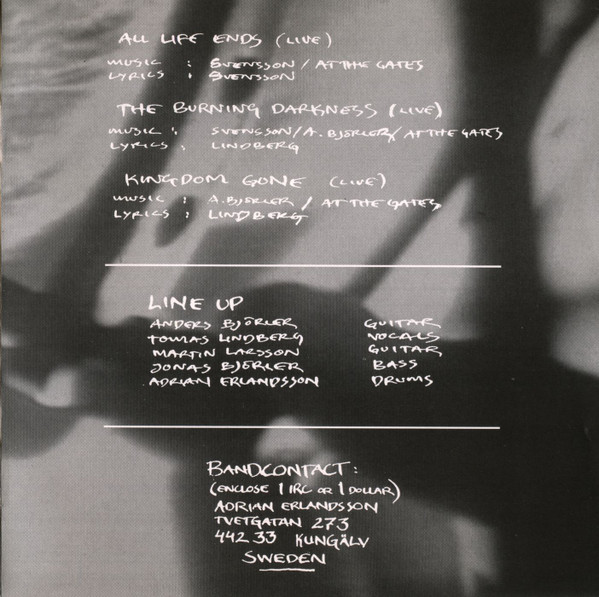 ALL LIFE ENDS (LIVE)
MUSIC : SVENSSON / AT THE GATES
LYRICS : SVENSSON
THE BURNING DARKNESS (LIVE)
MUSIC : SVENSSON/A. BJÖRLER/AT THE GATES
LYRICS : LINDBERG
KINGDOM GONE (LIVE)
MUSIC : A. BJÖRLER / AT THE GATES
LYRICS : LINDBERG
LINE UP
ANDERS BJÖRLER GUITAR
TOMAS LINDBERG VOCALS
MARTIN LARSSON GUITAR
JONAS BJÖRLER BASS
ADRIAN ERLANDSSON DRUMS
BANDCONTACT :
(ENCLOSE 1 IRC OR 1 DOLLAR)
ADRIAN ERLANDSSON
TVETGATAN 273
442 33 KUNGÄLV
SWEDEN